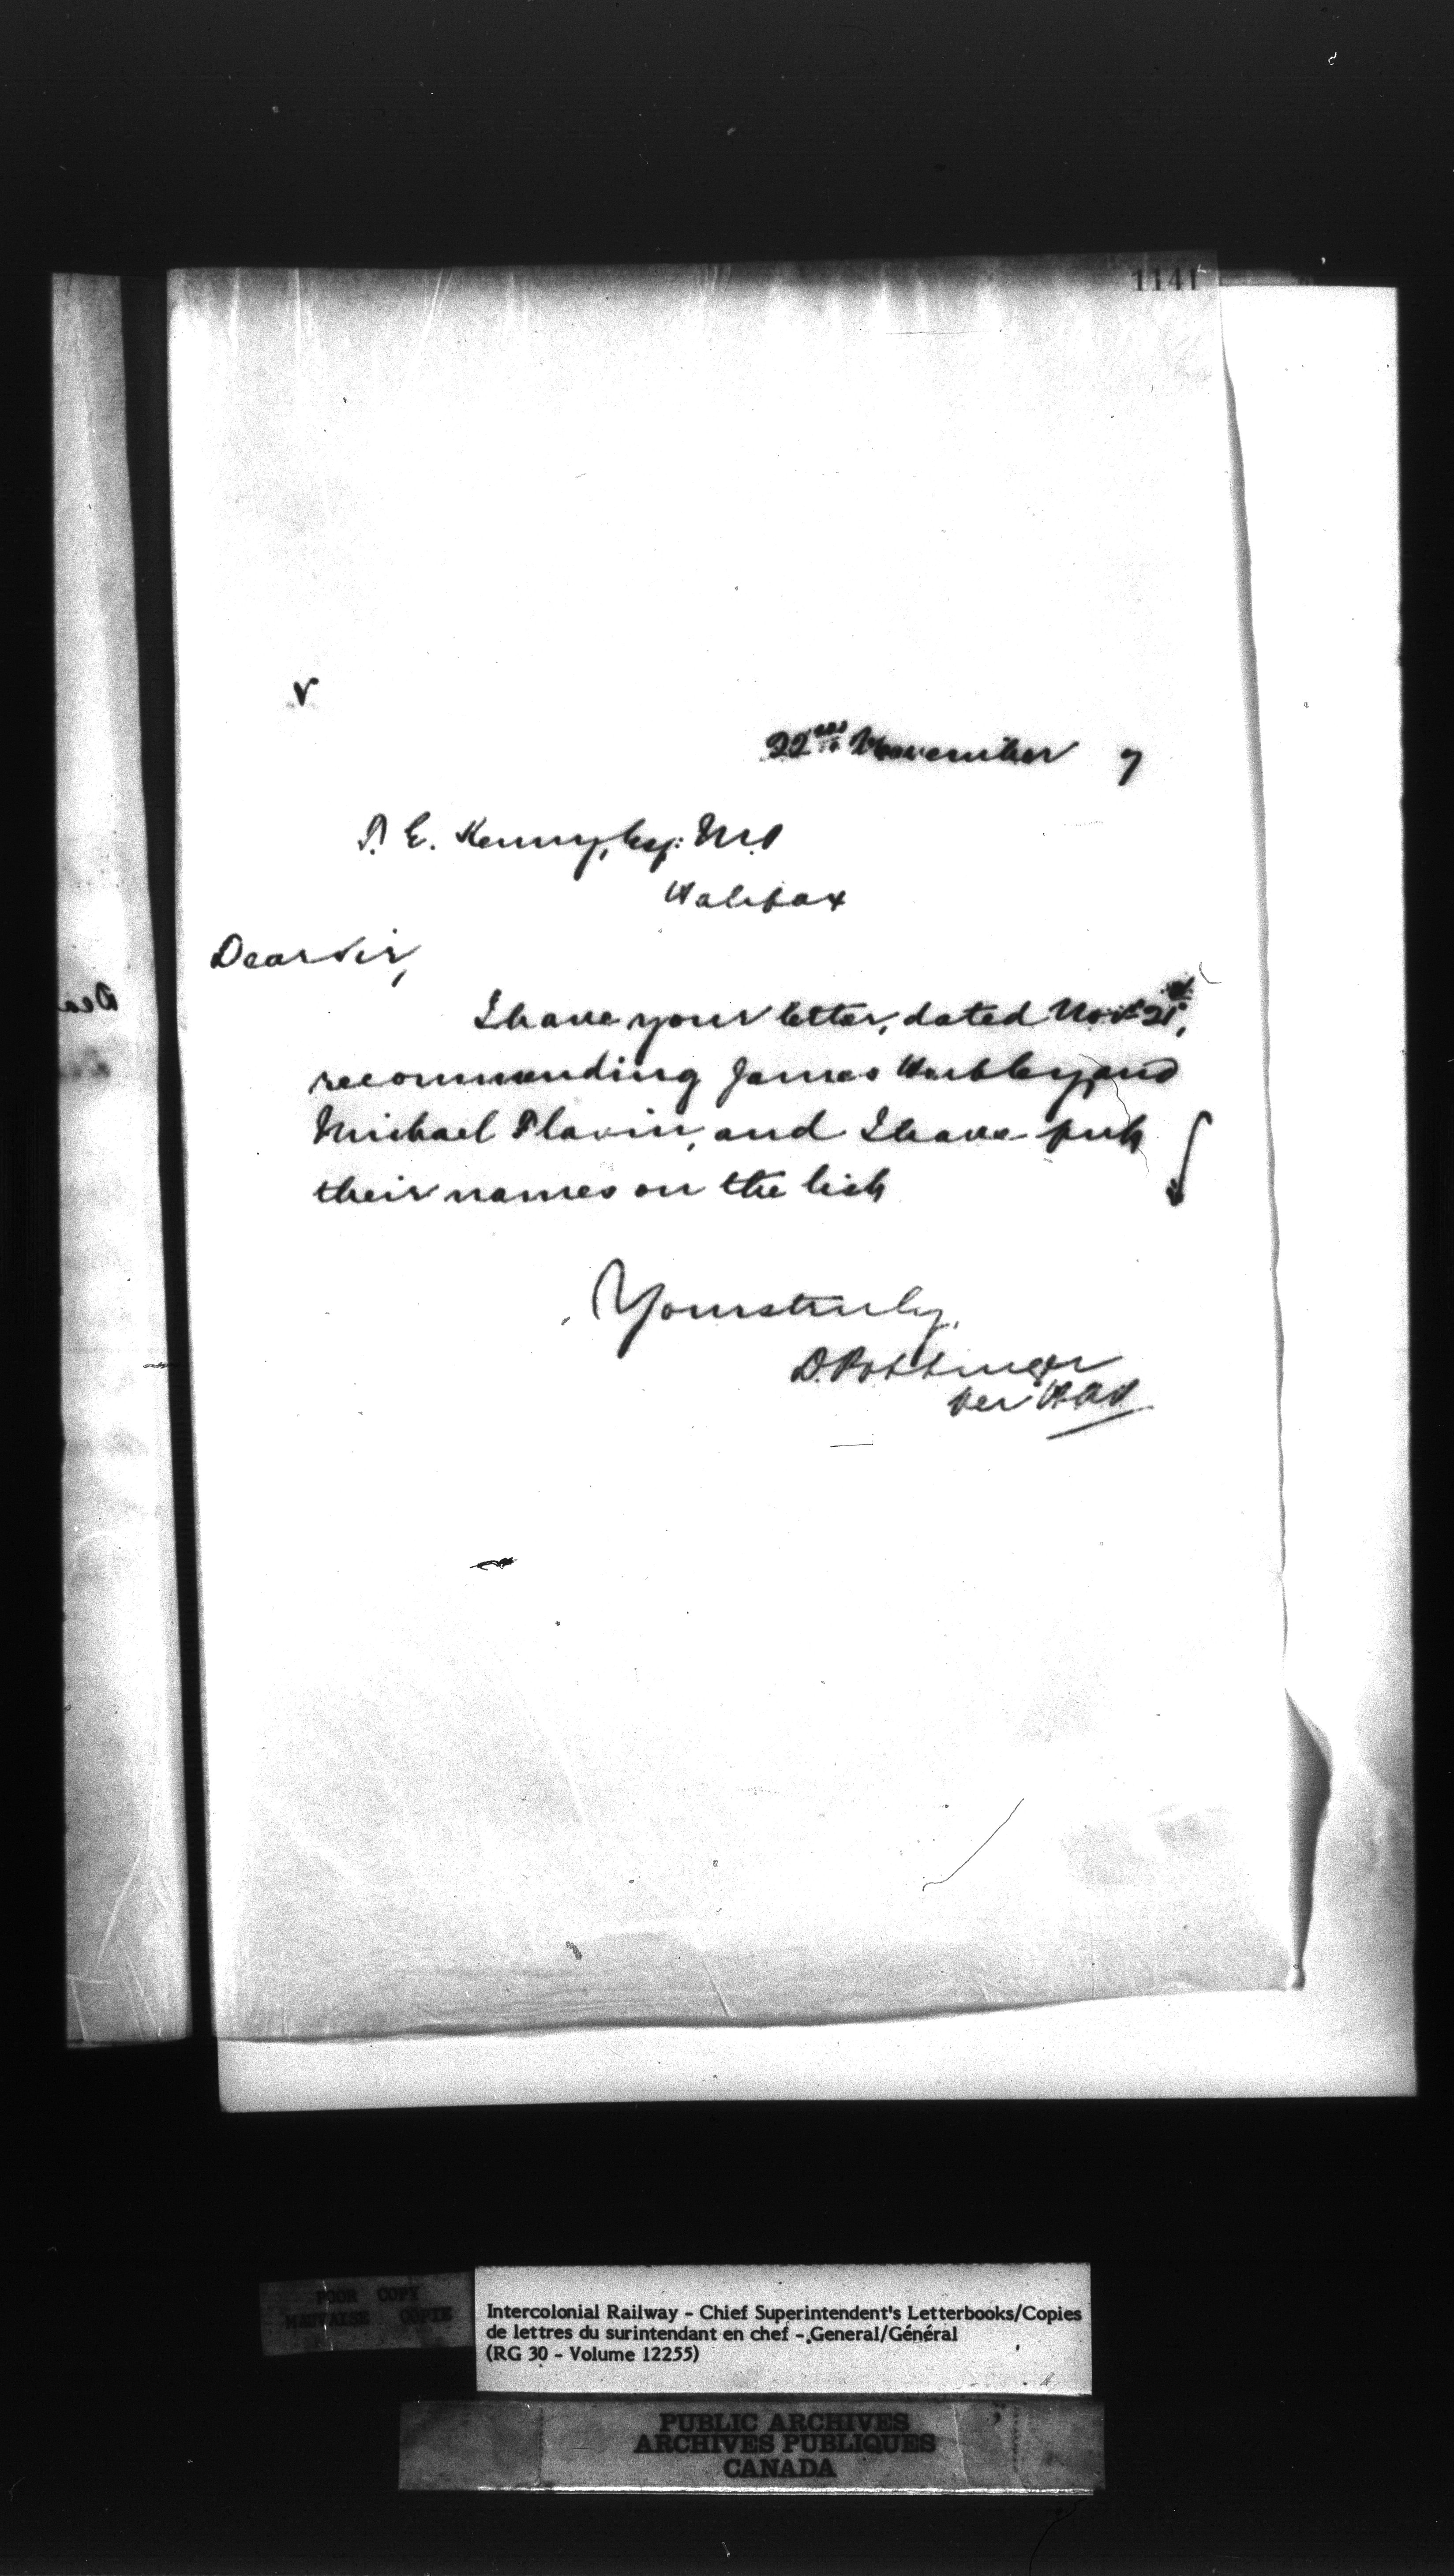 1141
v
22nd November 7
T. E. Kenny, Esq: M.P
Halifax
Dear Sir,
I have your letter, dated Nov: 21st,
recommending James Hubley, and
Michael Flavin, and I have put
their names on the list
Yours truly,
D. Pottinger
Per
Dea
POOR COPY
MAUVAISE COPIE
Intercolonial Railway - Chief Superintendent's Letterbooks/Copies
de lettres du surintendant en chef - General/Général
(RG 30 - Volume 12255)
PUBLIC ARCHIVES
ARCHIVES PUBLIQUES
CANADA